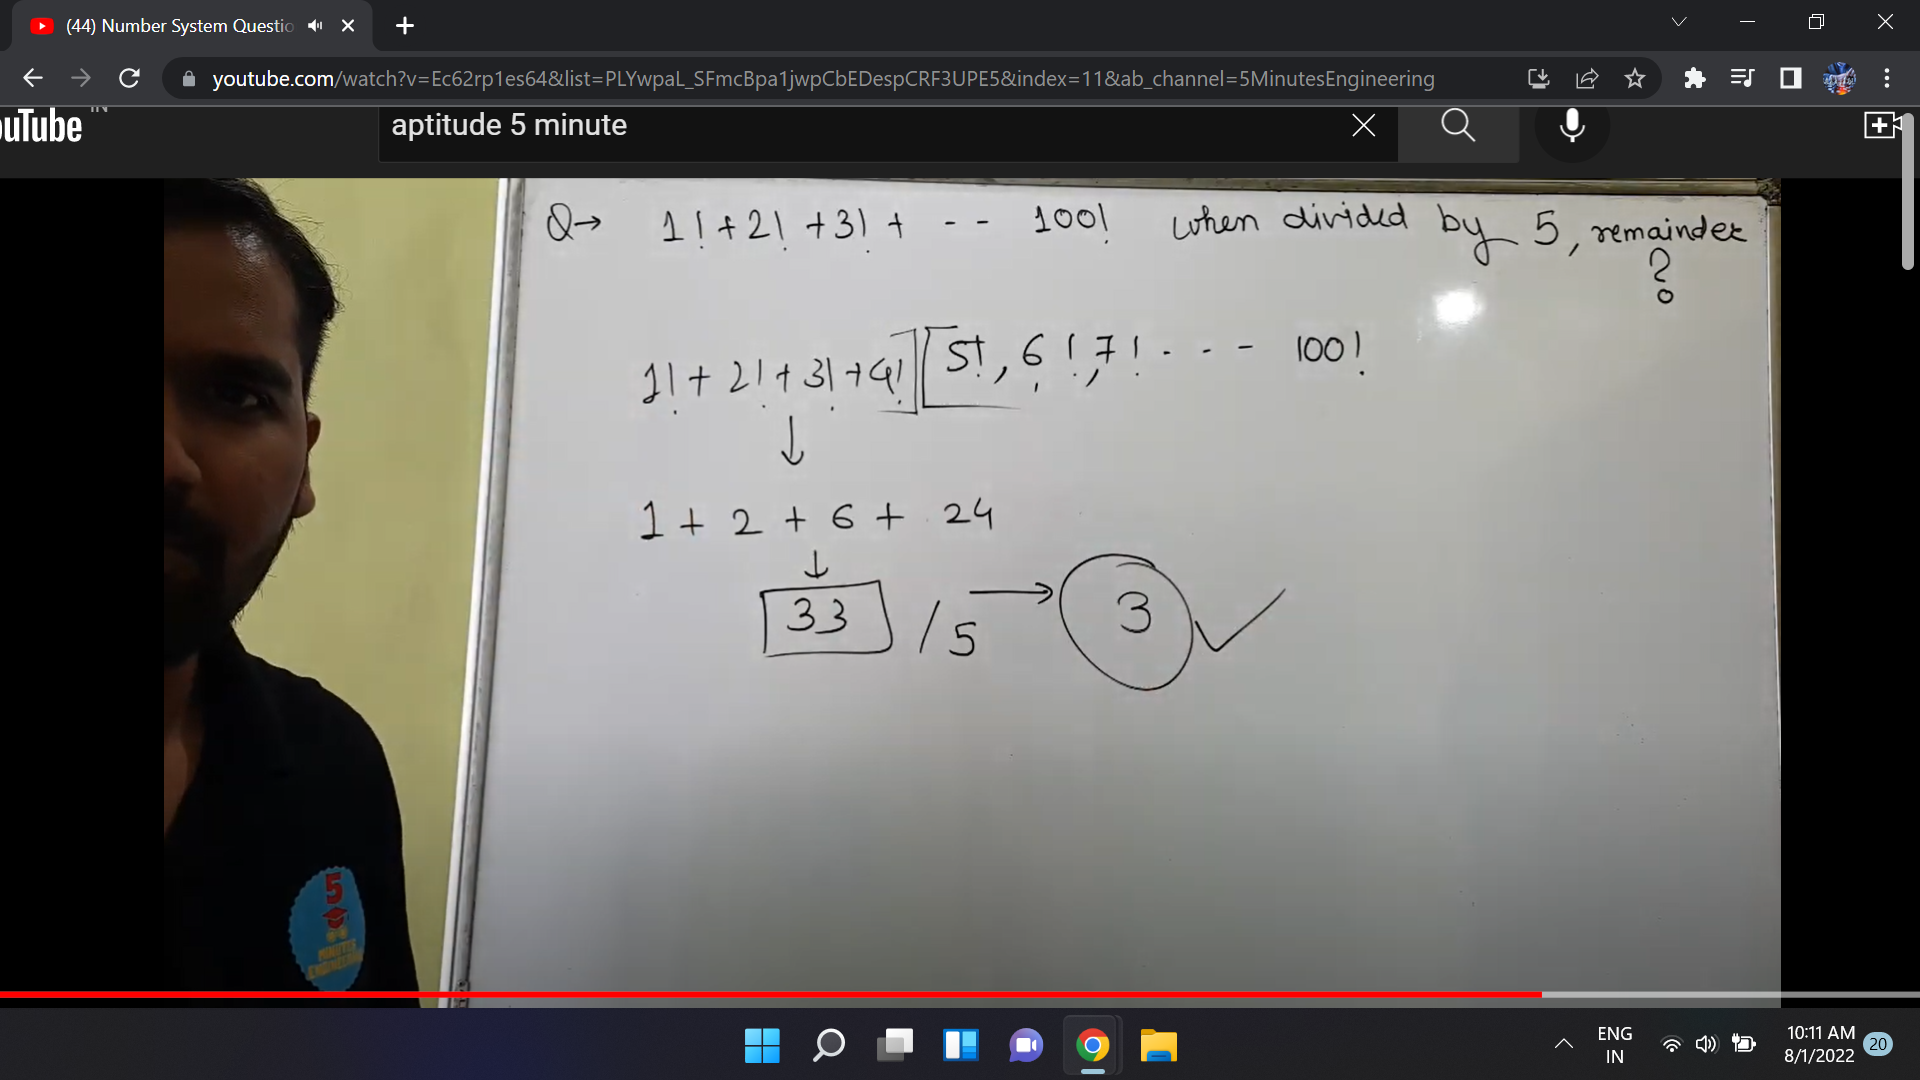 (44) Number System Questio
youtube.com/watch?v=Ec62rp1es64&list=PLYwpaL_SFmcBpa1jwpCbEDespCRF3UPE5&index=11&ab_channel=5MinutesEngineering
uTube IN
aptitude 5 minute
Q→ 1! + 2! + 3! + - - 100! when divided by 5, remainder ?
1! + 2! + 3! + 4! 5!, 6!, 7! - - - 100!
↓
1 + 2 + 6 + 24
↓
33 / 5 → 3 ✓
5
MINUTES
ENGINEERING
ENG
IN
10:11 AM
8/1/2022
20